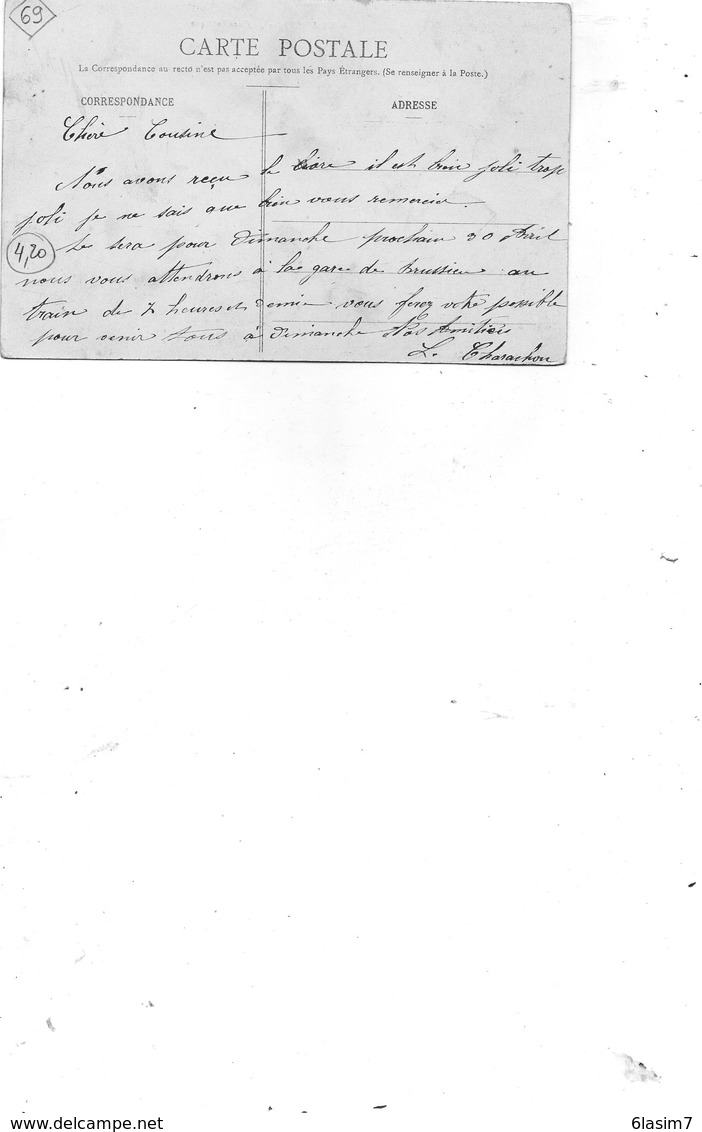 69
CARTE POSTALE
La Correspondance au recto n'est pas acceptée par tous les Pays Étrangers. (Se renseigner à la Poste.)
CORRESPONDANCE
ADRESSE
Chère Cousine
Nous avons reçu le il est bien joli trop
joli je ne sais que bien vous remercier.
Ce sera pour Dimanche prochain 30 Avril
4,20
nous vous attendrons à la gare de Brussieu au
train de 7 heures et demie vous ferez votre possible
pour venir tous à dimanche Nos Amitiés
L. Charachon
www.delcampe.net
6lasim7